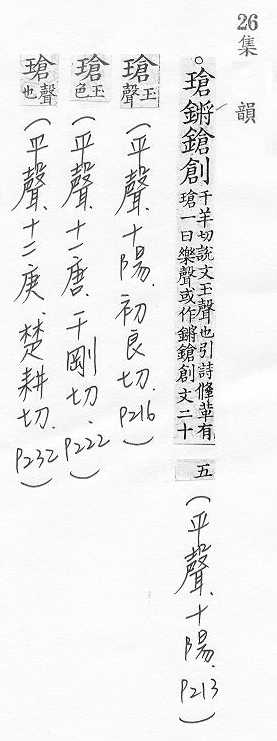 26
集韻
。瑲鏘鎗創千羊切說文玉聲也引詩鞗革有
瑲一曰樂聲或作鏘鎗創文二十五(平聲.十陽.P213)
瑲玉聲(平聲.十陽.初良切.P216)
瑲玉色(平聲.十一唐.千剛切.P222)
瑲聲也(平聲.十二庚.楚耕切.P232)